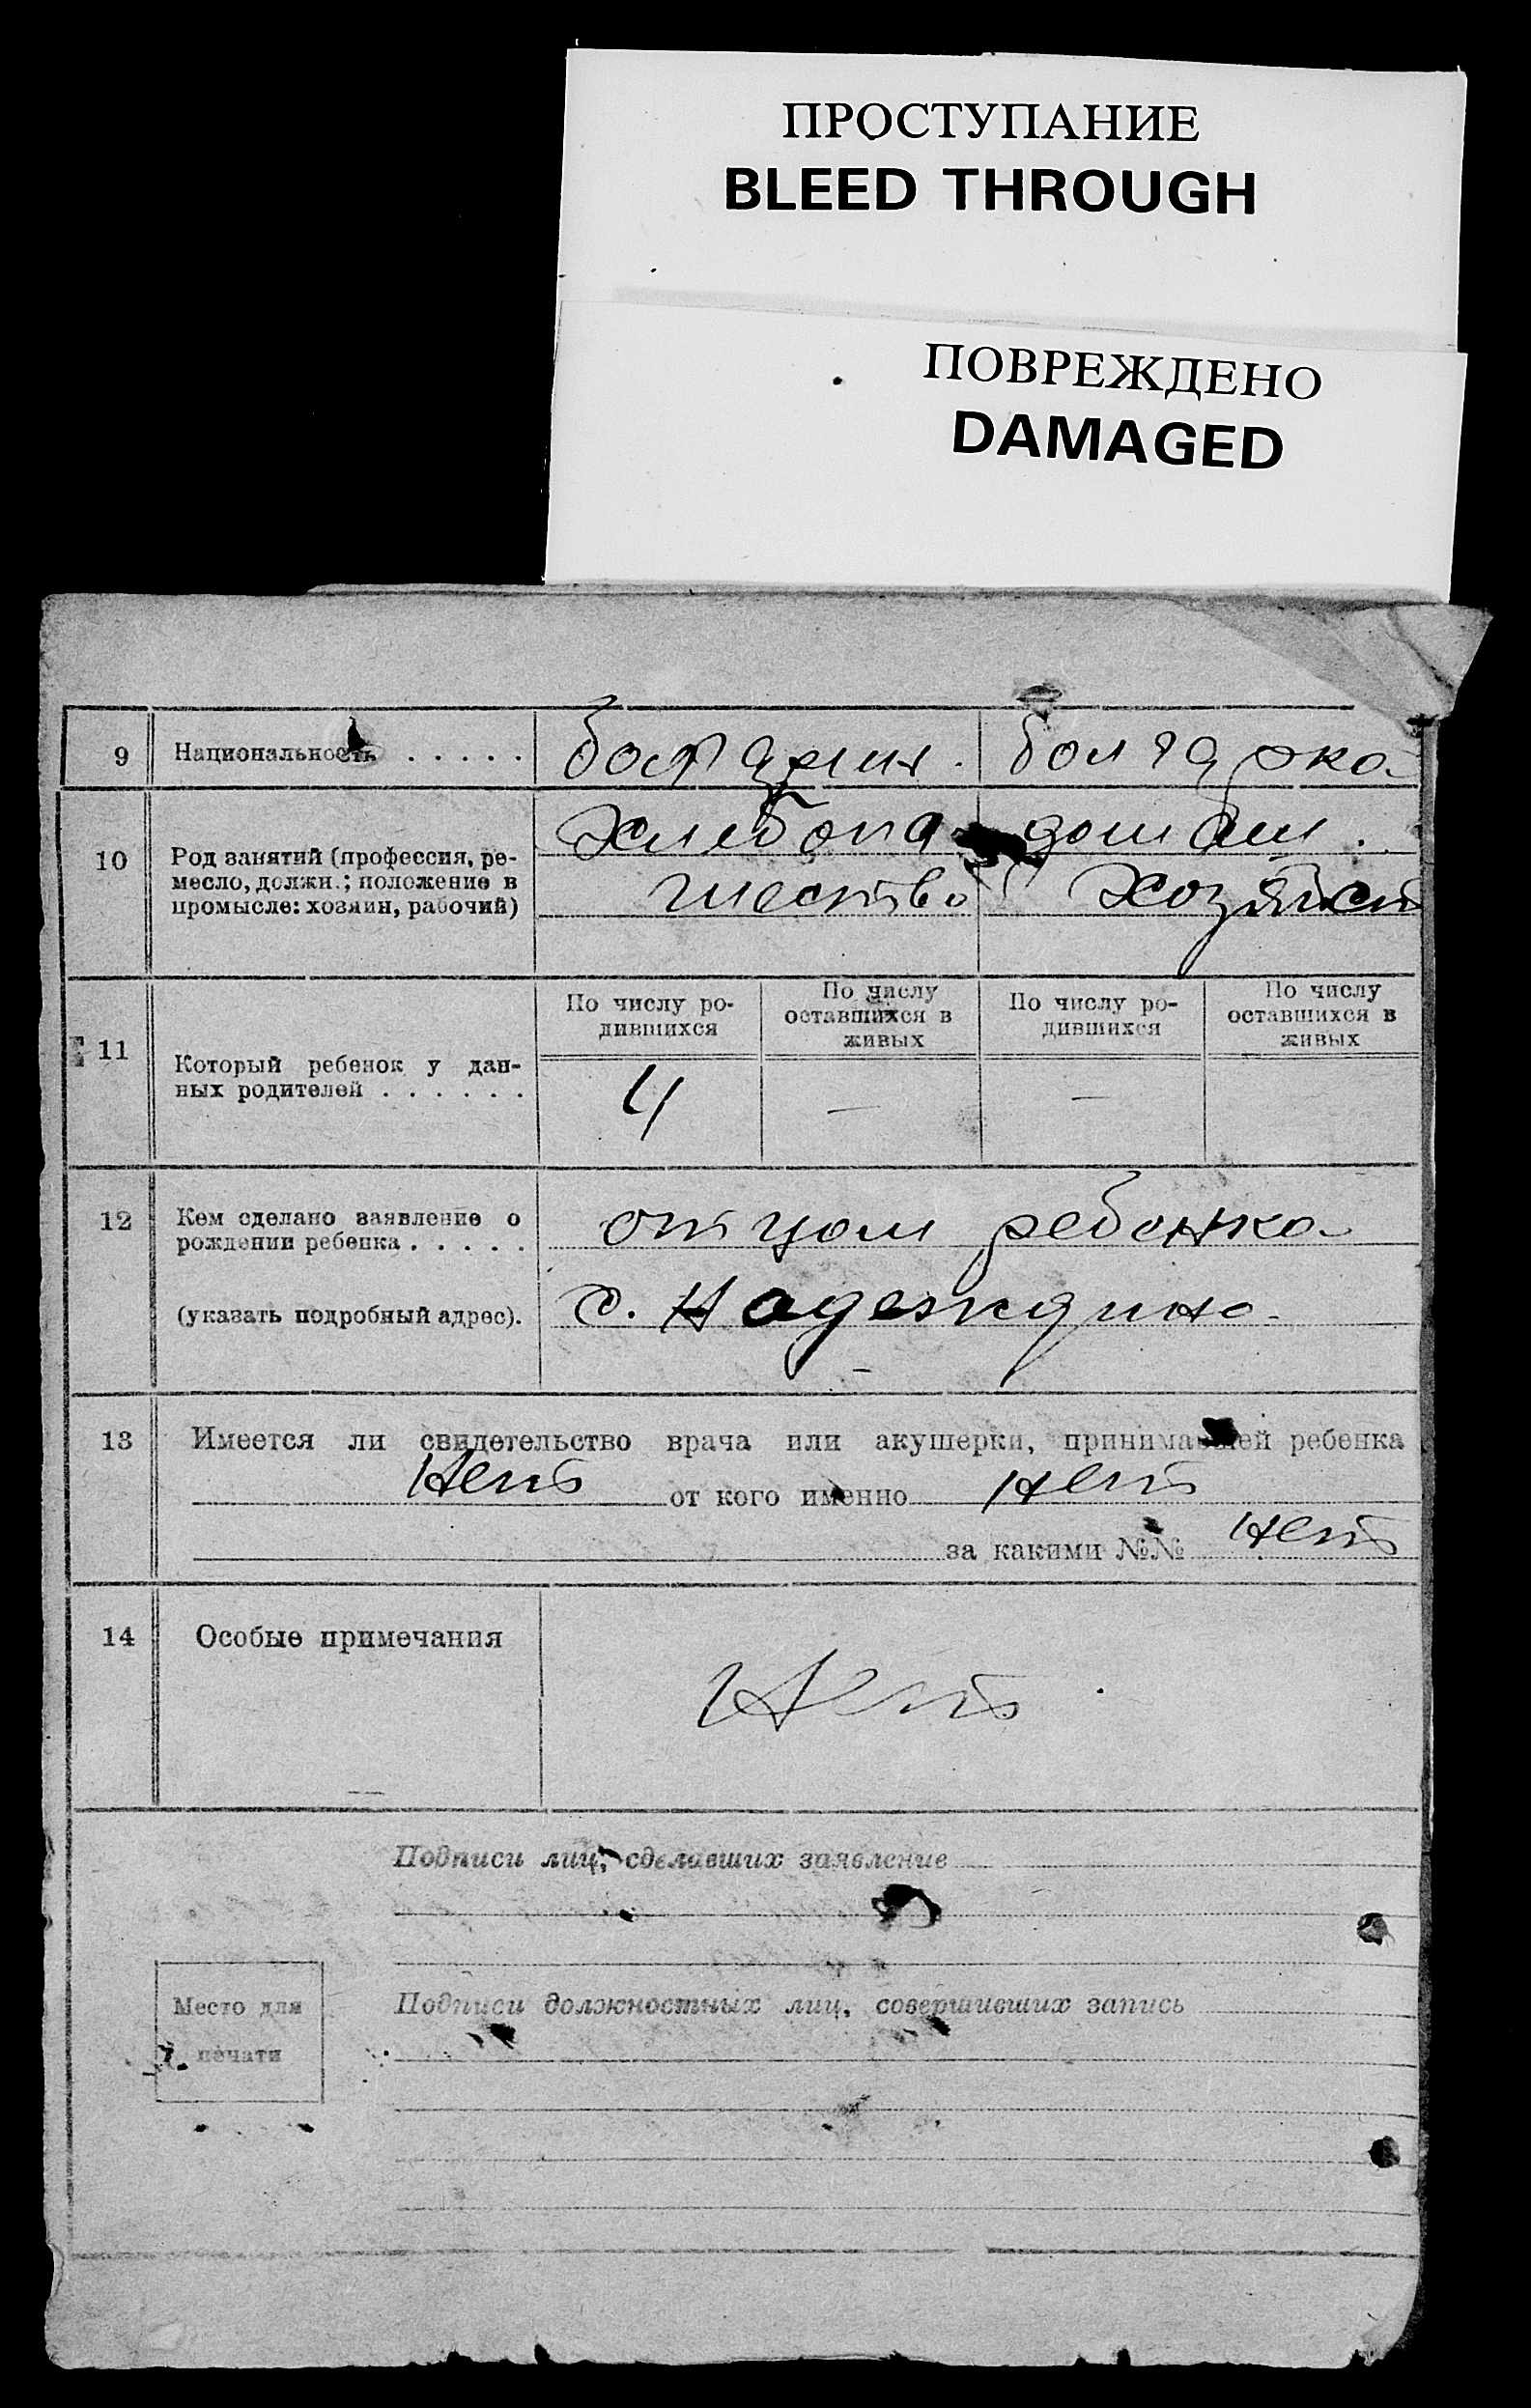 ПРОСТУПАНИЕ
BLEED THROUGH
ПОВРЕЖДЕНО
DAMAGED
9 Национальность . . . . . болгарин. болгарка
10 Род занятий (профессия, ре-
месло, должн.; положение в
промысле: хозяин, рабочий)
Хлебопа домаш.
шество хозяйст
11 Который ребенок у дан-
ных родителей . . . . . .
По числу ро-
дившихся
По числу
оставшихся в
живых
По числу ро-
дившихся
По числу
оставшихся в
живых
4 — —
12 Кем сделано заявление о
рождении ребенка . . . . .
отцом ребенка
(указать подробный адрес). с. Надеждино
13 Имеется ли свидетельство врача или акушерки, принимавшей ребенка
Нет от кого именно Нет
за какими №№ Нет
14 Особые примечания
Нет
Подписи лиц, сделавших заявление
Место для
печати
Подписи должностных лиц, совершивших запись